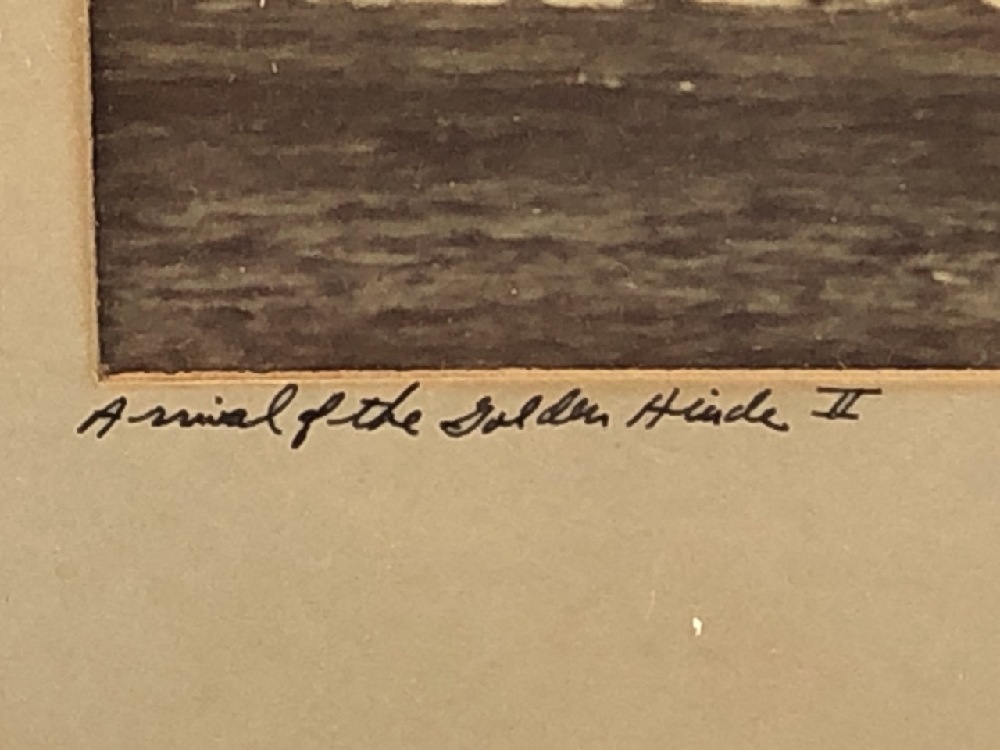 Arrival of the Golden Hinde II